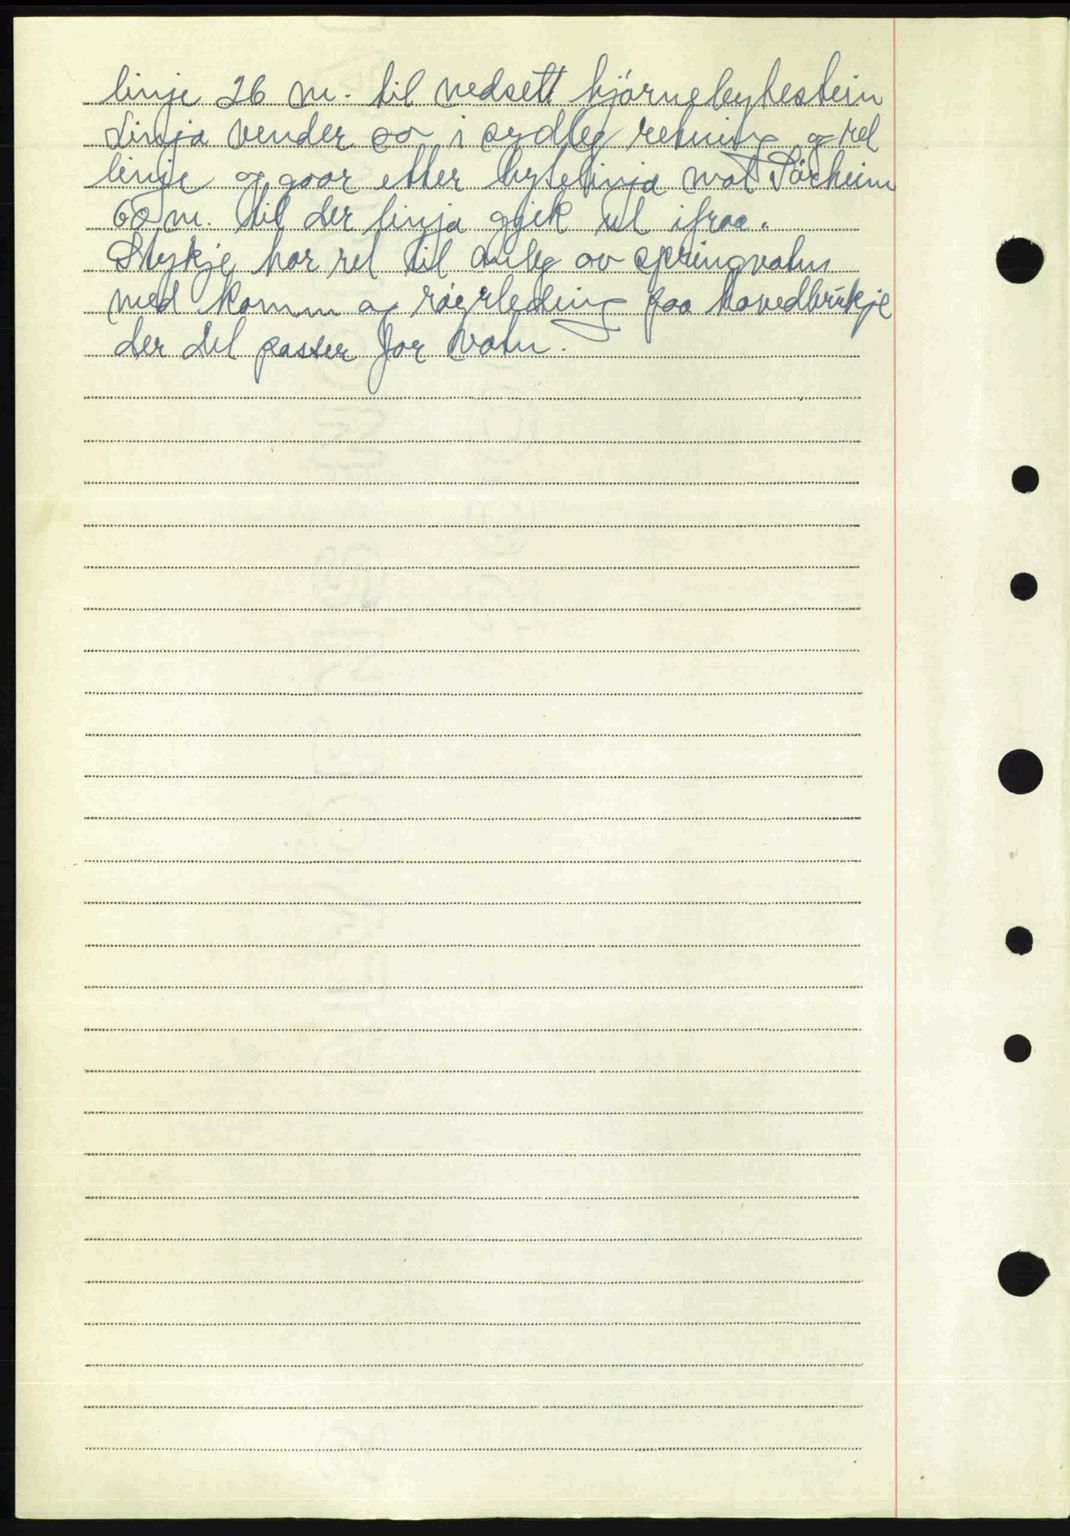 linje 26 m. til nedsett hjörnebytestein
Linja vender so i sydleg retning og ret
linje og gaar etter bytelinja mot Sörheim
60 m. til der linja gjek ut ifraa.
Stykje har ret til anleg av springvatn
med komm og röyrleding paa hovedbrukje
der det passer for vatn.